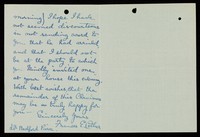 morning) I hope I have
not seemed discourteous
in not sending word to
you that he had arrived
and that I should not
be at the party to which
you kindly invited me,
at your house this evening.
With best wishes that the
remainder of this Christmas
may be a truly happy for
you —
Sincerely Yours
Francis